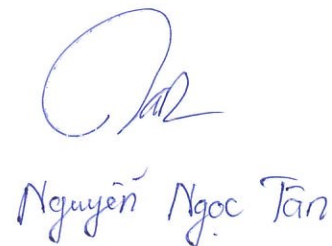 Nguyễn Ngọc Tân